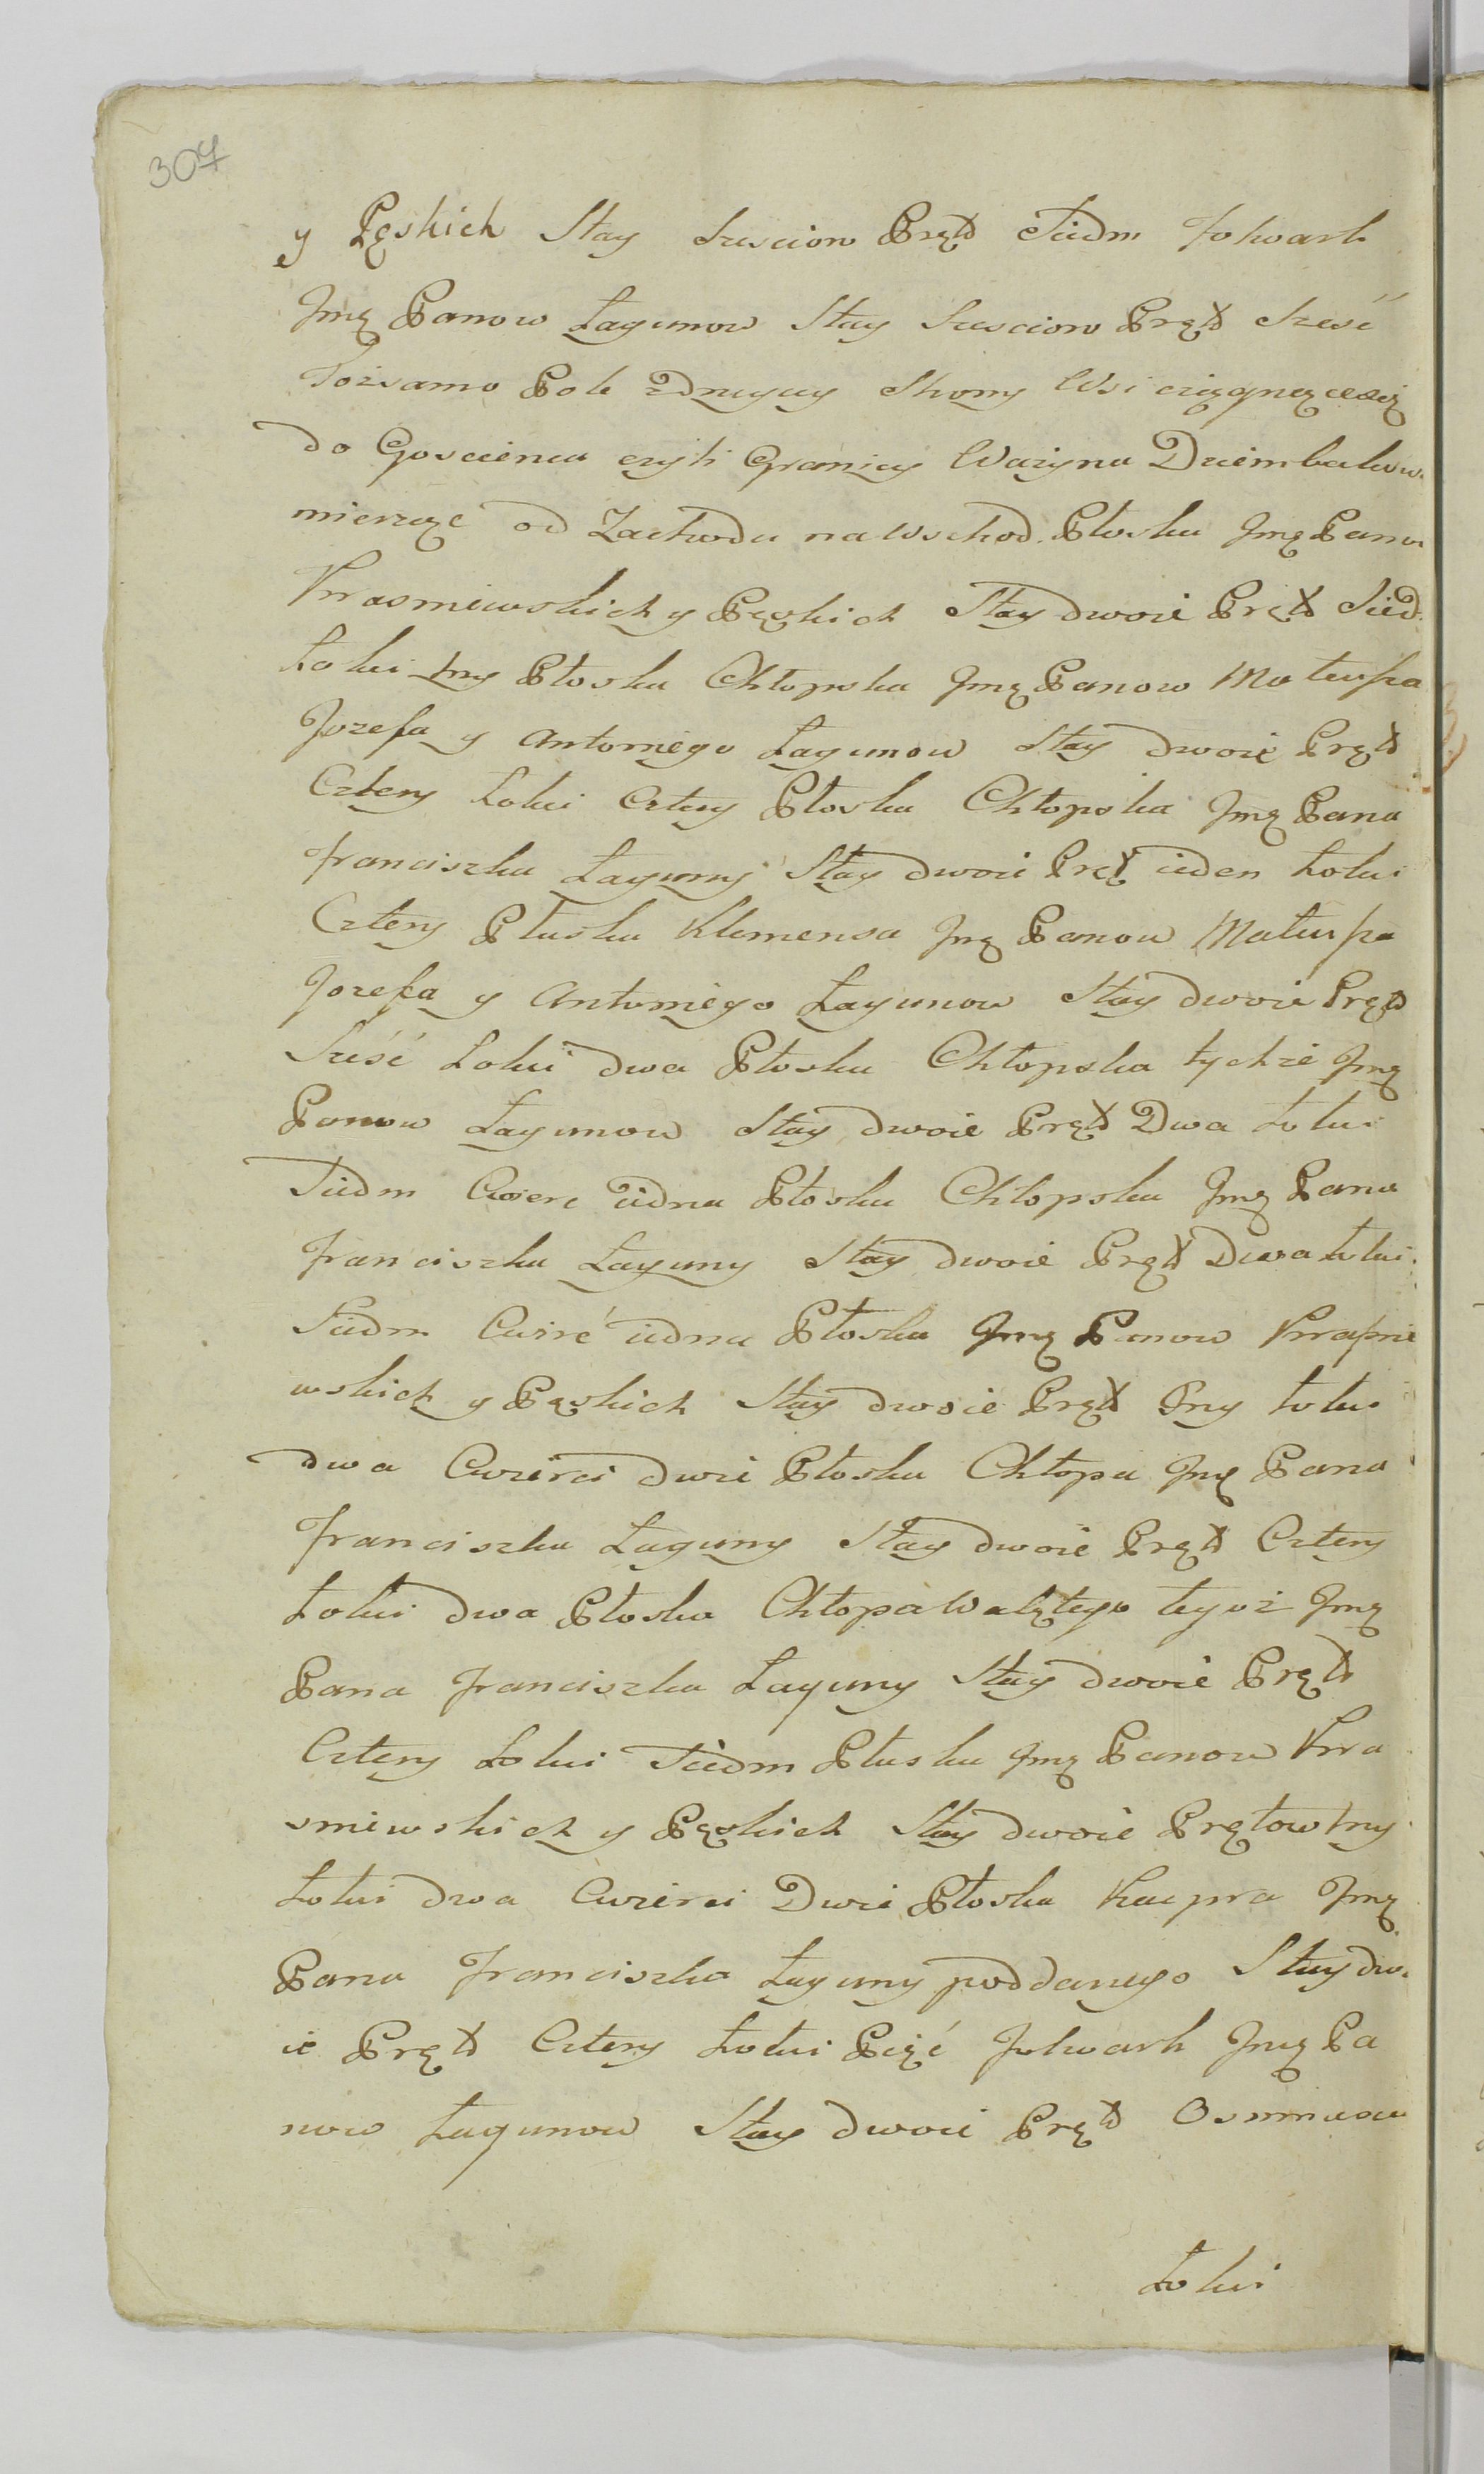 307
y Pęskich Stay Szescioro Pręt: Siedm Folwark
Jmę Panow Łagunow Stay Szescioro Pręt: Sześć
Toż samo Pole z drugiey Strony Wsi ciągnące się
do Goscienca czyli Granicy Ważyna Dziembakow.
mierząc od Zachodu na wschod. Płoska Jmę Panow
Krasniewskich y Pęskich Stay dwoie Pręt: Sied:
Łokci trzy Płoska Chłopska Jmę Panow Mateusza
Jozefa y Antoniego Łagunow Stay dwoie Pręt:
Cztery Łokci Cztery Płoska Chłopska Jmę Pana
Franciszka Łaguny Stay dwoie Pręt ieden Łokci
Cztery Płuska Klemensa Jmę Panow Mateusza
Jozefa y Antoniego Łagunow Stay dwoie Pręt:
Sześć Łokci dwa Płoska Chłopska tychże Jmę
Panow Łagunow Stay dwoie Pręt: Dwa Łokci
Siedm Cwierc iedna Płoska Chłopska Jmę Pana
Franciszka Łaguny Stay dwoie Pręt: Dwa łokci
Siedm Cwierć iedna Płoska Jmę Panow Krasnie
wskich y Pęskich Stay dwoie Pręt: Trzy łokci
dwa Cwierci dwie Płoska Chłopa Jmę Pana
Franciszka Łaguny Stay dwoie Pręt: Cztery
Łokci dwa Płoska Chłopa Walętego tegoż Jmę
Pana Franciszka Łaguny Stay dwoie Pręt:
Cztery Łokci Siedm Płuska Jmę Panow Kra
sniewskich y Pęskich Stay dwoie Prętow trzy
Łokci dwa Cwierci Dwie Płoska Kacpra Jmę
Pana Franciszka Łaguny poddanego Stay dwo
ie Pręt: Cztery Łokci Pięć Folwark Jmę Pa
now Łagunow Stay dwoie Pręt:
Łokci